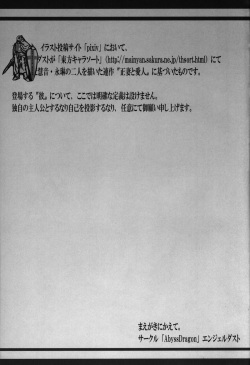 イラスト投稿サイト「pixiv」において、
ダストが「東方キャラソート」(http://mainyan.sakura.ne.jp/thsort.html)にて
慧音・永琳の二人を描いた連作『正妻と愛人』に基づいたものです。
登場する“彼”について、ここでは明確な定義は設けません。
独自の主人公とするなり自己を投影するなり、任意にて御願い申し上げます。
まえがきにかえて。
サークル「AbyssDragon」エンジェルダスト